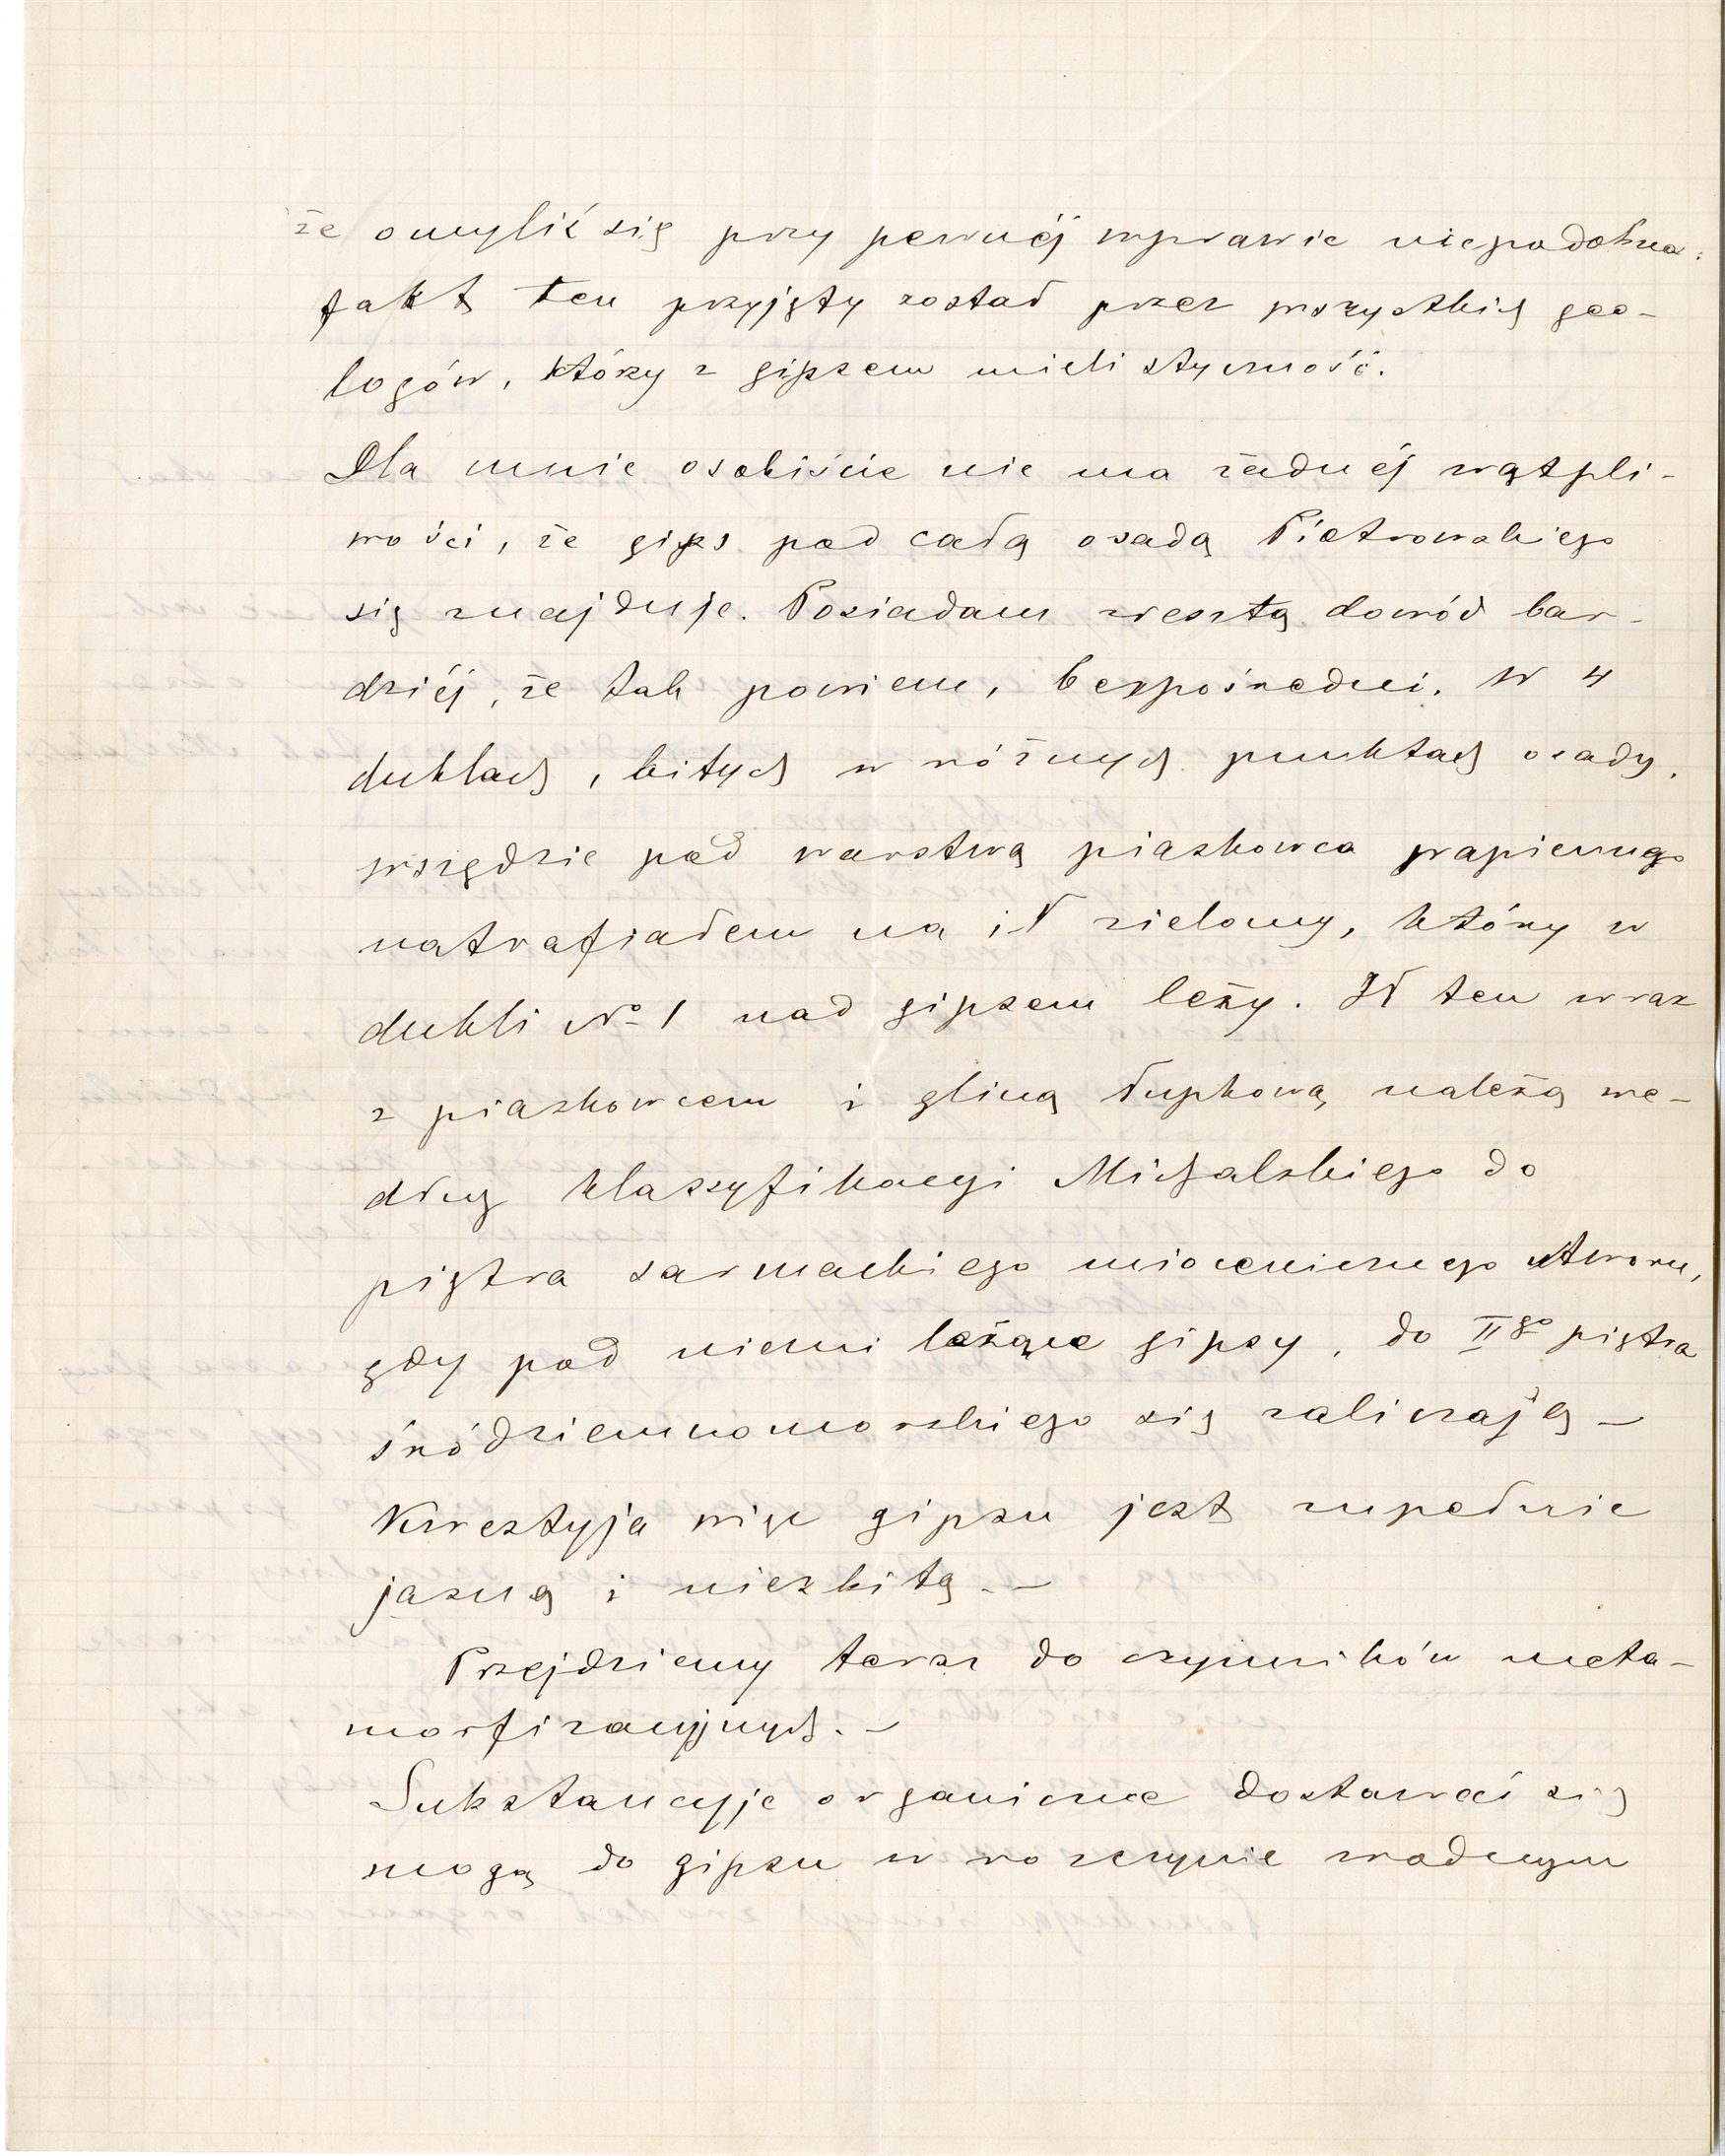 że omylić się przy pewnéj wprawie niepodobna;
fakt ten przyjęty został przez wszystkich geo-
logów, którzy z gipsem mieli styczność.
Dla mnie osobiście nie ma żadnéj wątpli-
wości, że gips pod całą osadą Pietrowskiego
się znajduje. Posiadam zresztą dowód bar-
dziéj, że tak powiem, bezpośredni. W 4
duklach, bitych w różnych punktach osady,
wszędzie pod warstwą piaskowca wapiennego
natrafiałem na ił zielony, który w
dukli No 1 nad gipsem leży. Ił ten wraz
z piaskowcem i gliną łupkową należą we-
dług klassyfikacyi Michalskiego do
piętra sarmackiego miocenicznego utworu,
gdy pod niemi leżące gipsy, do IIgo piętra
śródziemnomorskiego się zaliczają —
Kwestyja więc gipsu jest zupełnie
jasną i niezbitą. —
Przejdziemy teraz do czynników meta-
morfizacyjnych. —
Substancyje organiczne dostawać się
mogą do gipsu w rozczynie wodnym